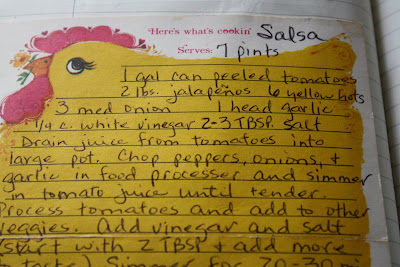 Here's what's cookin' Salsa
Serves: 7 pints
1 gal can peeled tomatoes
2 lbs. jalapeños 6 yellow hots
3 med onion 1 head garlic
1/4 c. white vinegar 2-3 TBSP. salt
Drain juice from tomatoes into
large pot. Chop peppers, onions, +
garlic in food processer and simmer
in tomato juice until tender.
Process tomatoes and add to other
veggies. Add vinegar and salt
(start with 2 TBSP + add more
to taste) Simmer for 20-30